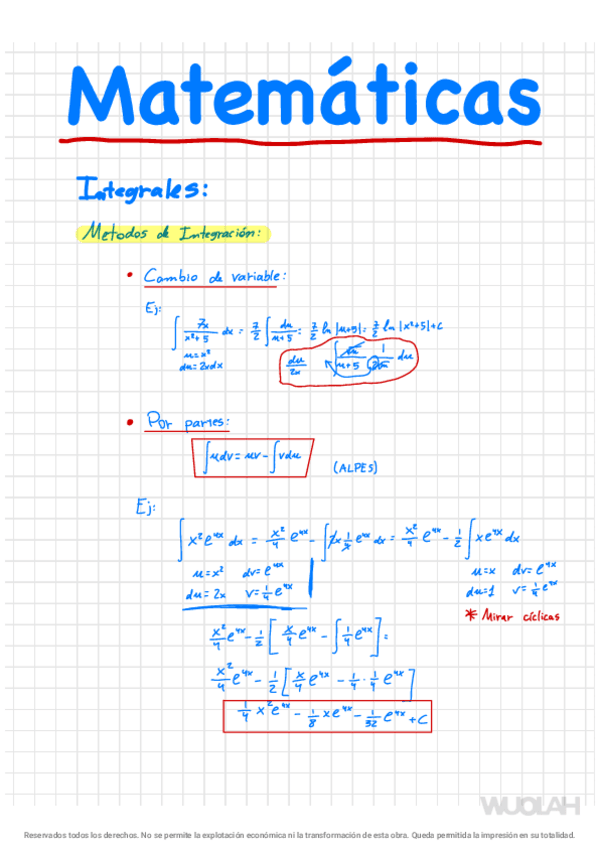 Matemáticas
Integrales:
Metodos de Integración:
• Cambio de variable:
Ej:
∫ 7x/(x²+5) dx = 7/2 ∫ du/(u+5) = 7/2 ln|u+5| = 7/2 ln|x²+5|+C
u=x²
du=2xdx
du/2x ∫ /(u+5) 1/ du
• Por partes:
∫udv = uv - ∫vdu
(ALPES)
Ej:
∫ x² e^4x dx = x²/4 e^4x - ∫ 2x 1/4 e^4x dx = x²/4 e^4x - 1/2 ∫ x e^4x dx
u=x² dv=e^4x u=x dv=e^4x
du=2x v=1/4 e^4x du=1 v=1/4 e^4x
* Mirar cíclicas
x²/4 e^4x - 1/2 [ x/4 e^4x - ∫ 1/4 e^4x ] =
x²/4 e^4x - 1/2 [ x/4 e^4x - 1/4 · 1/4 e^4x ]
1/4 x² e^4x - 1/8 x e^4x - 1/32 e^4x + C
WUOLAH
Reservados todos los derechos. No se permite la explotación económica ni la transformación de esta obra. Queda permitida la impresión en su totalidad.